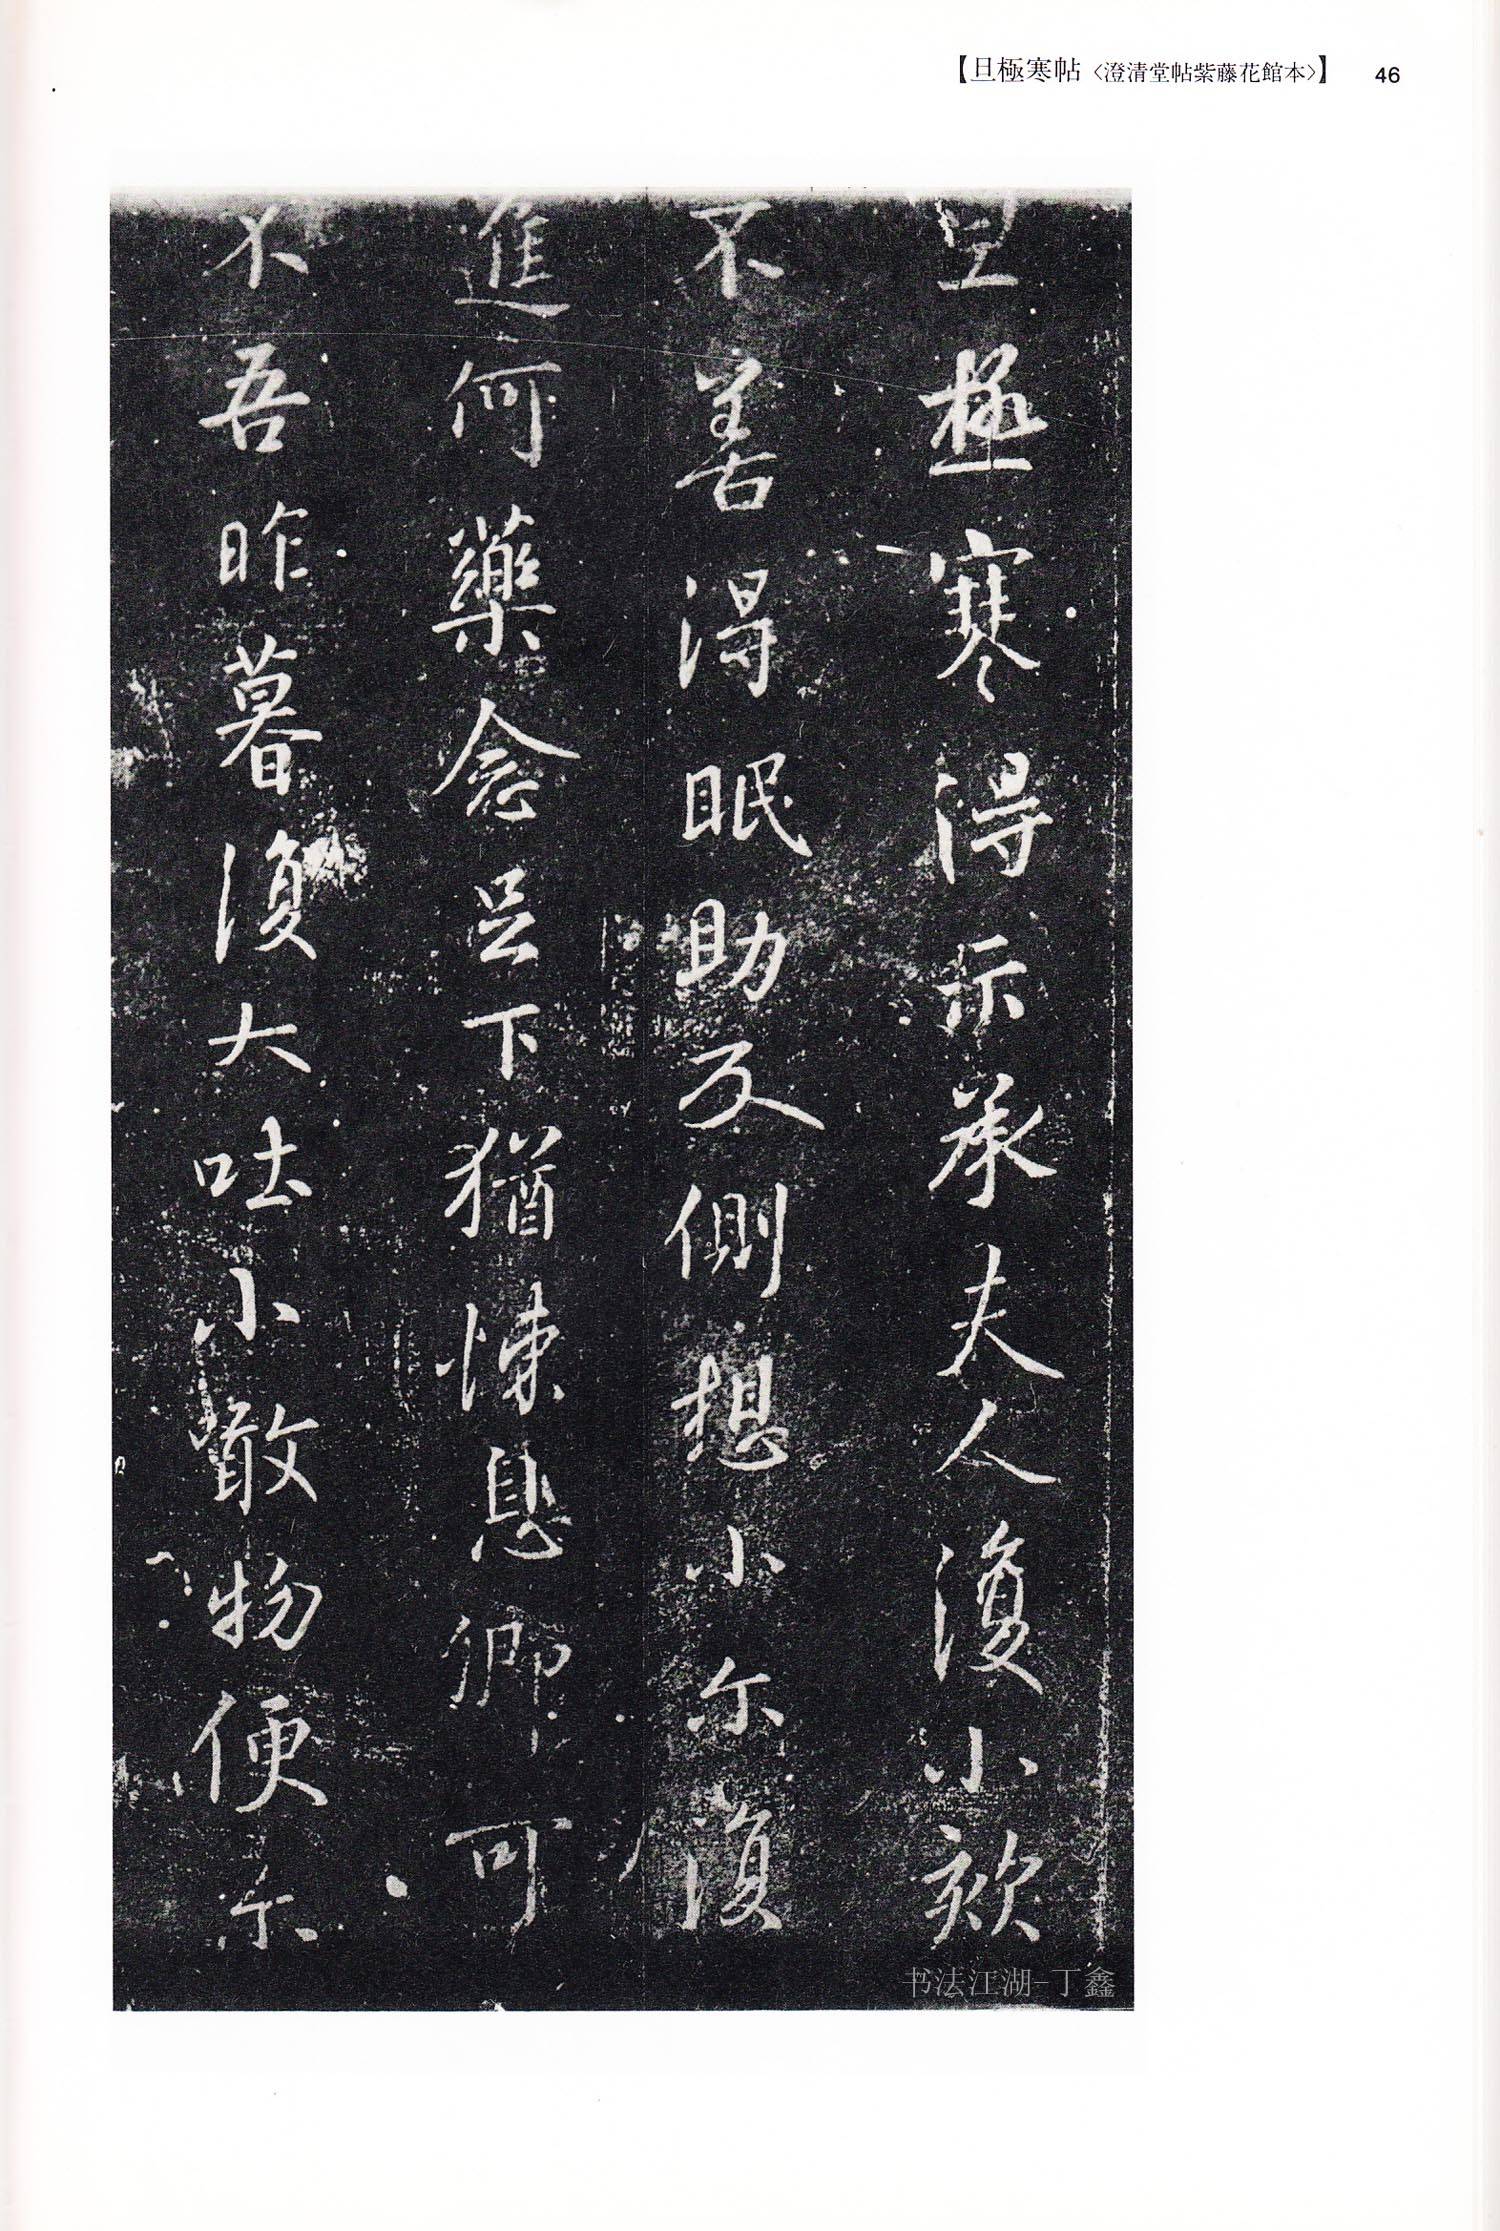 【旦極寒帖〈澄清堂帖紫藤花館本〉】 46
旦極寒得示承夫人復小欬
不善得眠助反側想小尔復
進何藥念足下猶悚息卿可
不吾昨暮復大吐小敢物便尔
书法江湖-丁鑫